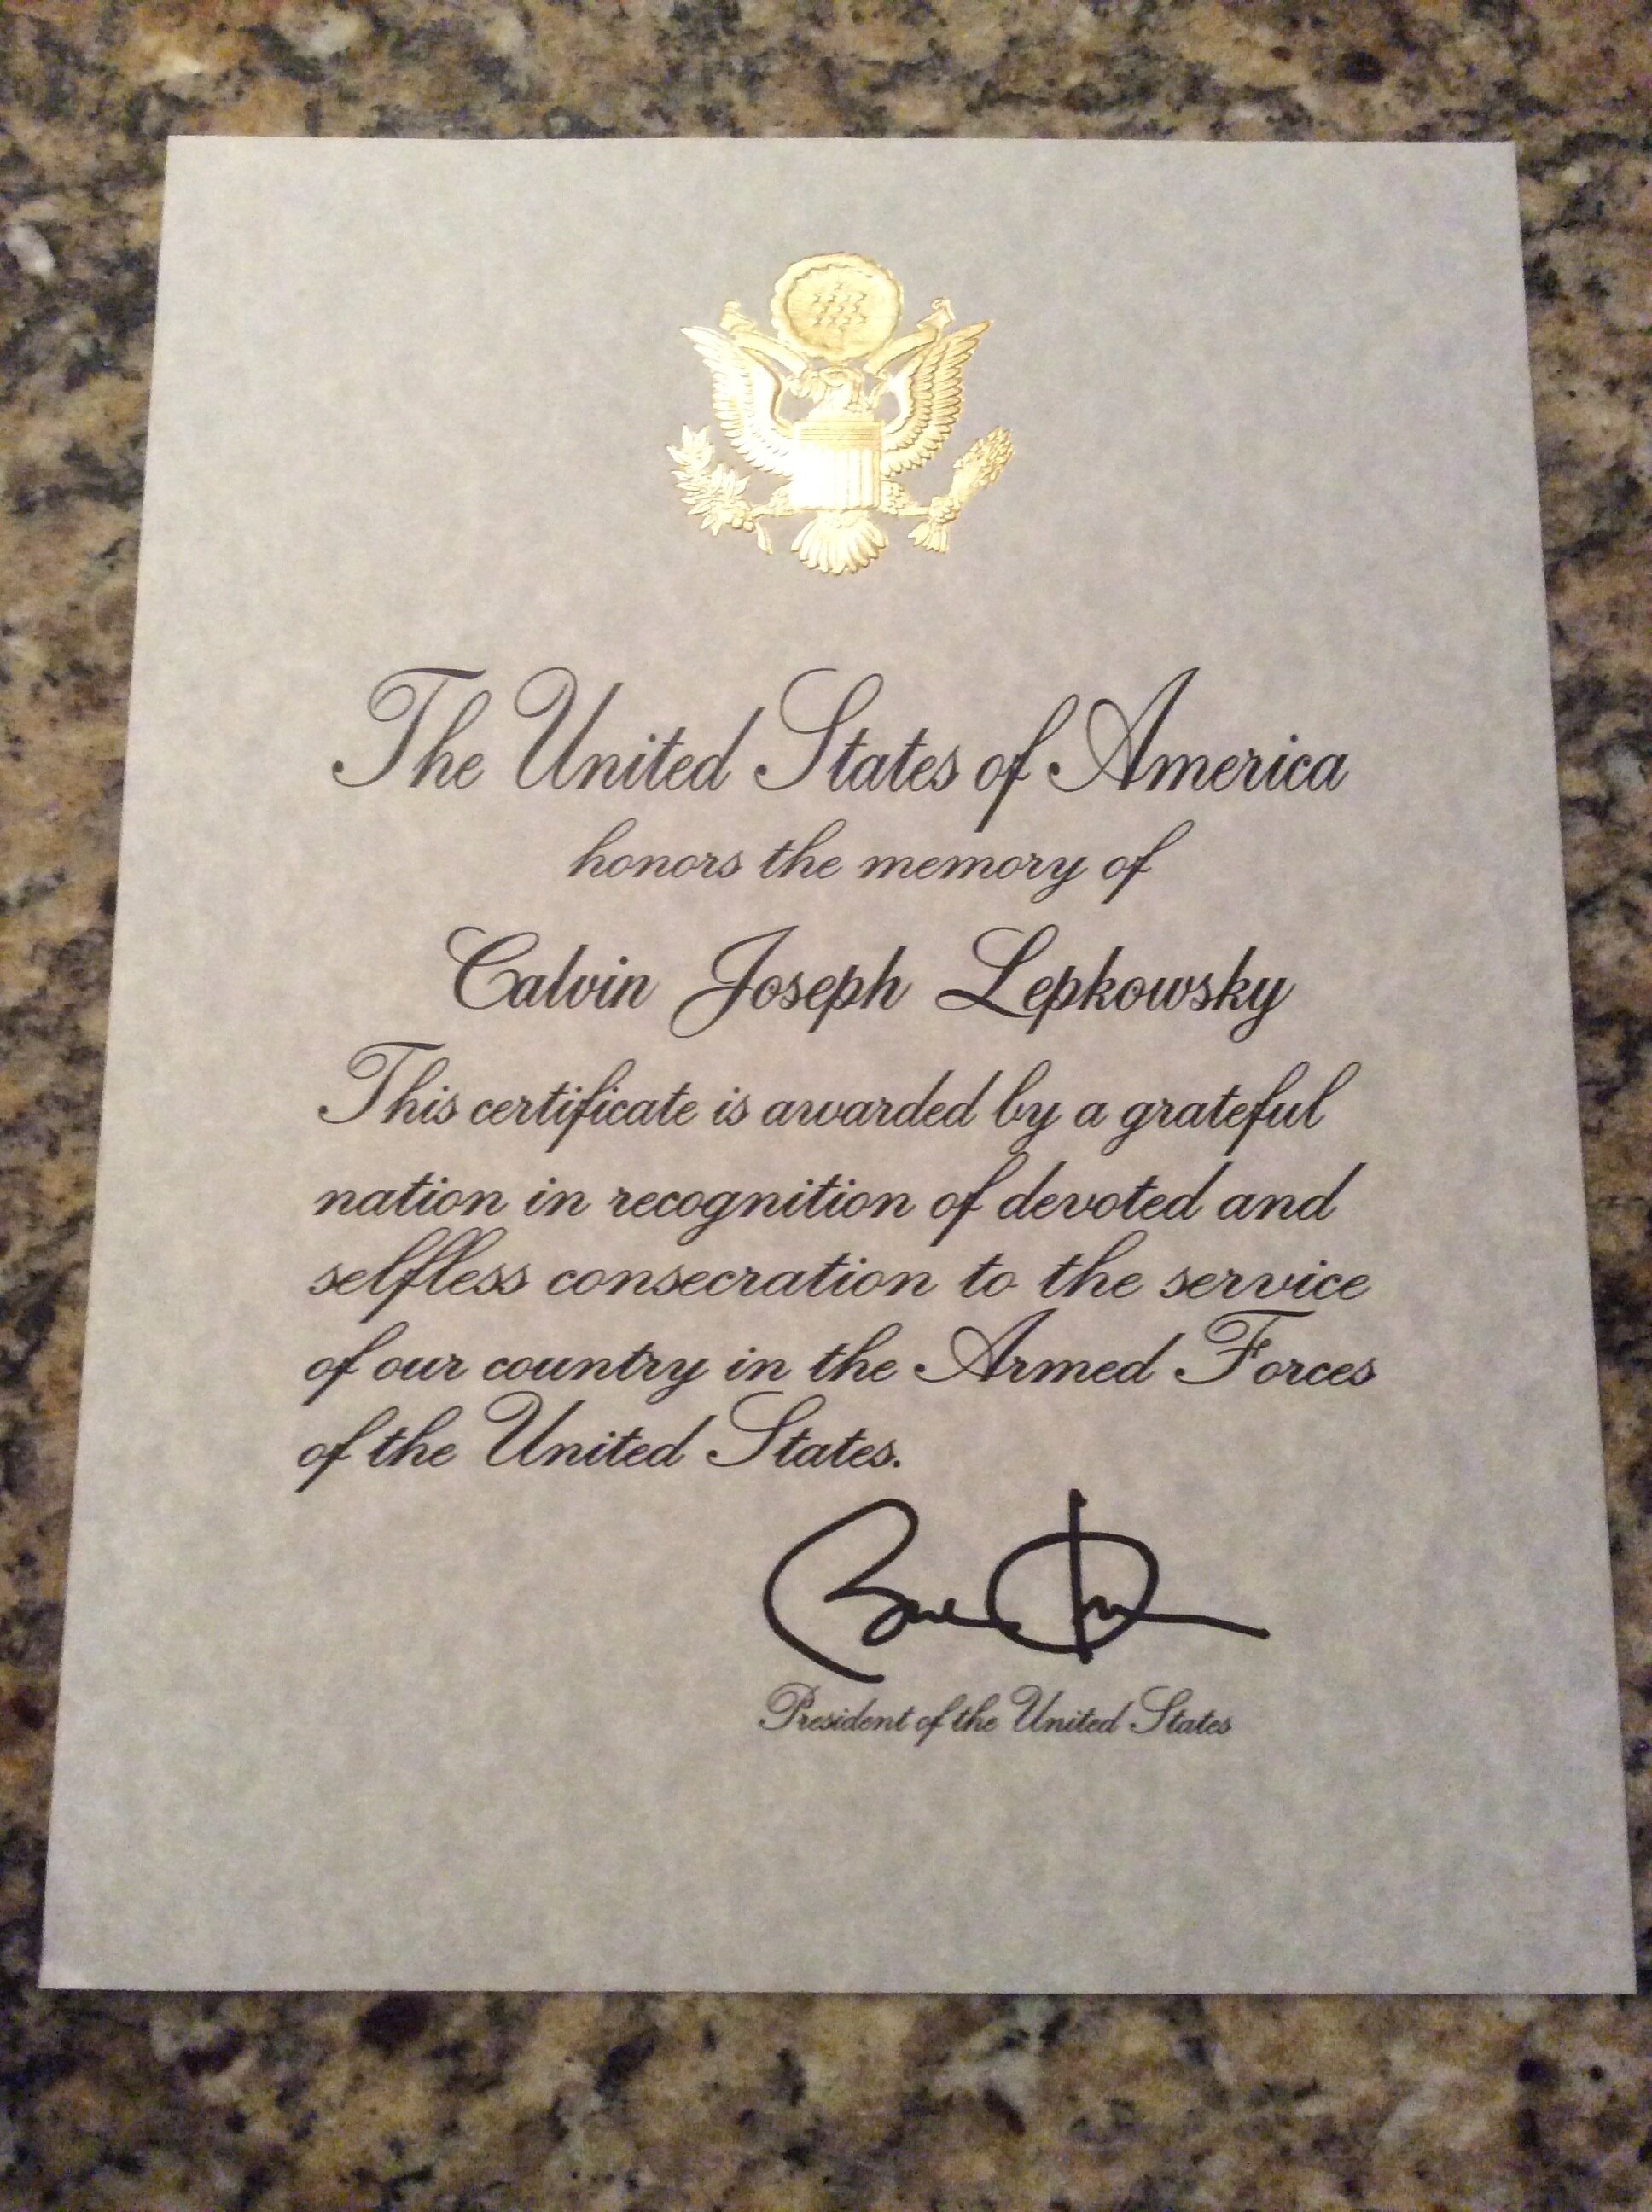 The United States of America
honors the memory of
Calvin Joseph Lepkowsky
This certificate is awarded by a grateful
nation in recognition of devoted and
selfless consecration to the service
of our country in the Armed Forces
of the United States.
President of the United States